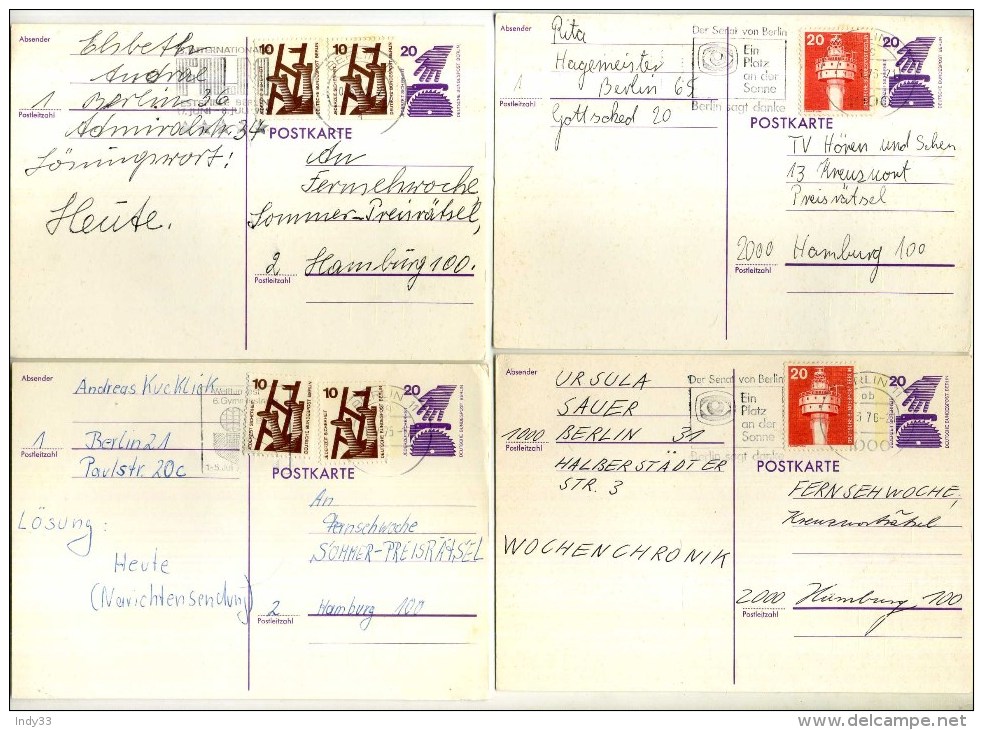 Absender
Elsbeth
Andral
1 Berlin 36
Postleitzahl
Admiralstr. 34
Lösungswort:
Heute.
10
10
20
POSTKARTE
An
Fernsehwoche
Sommer-Preisrätsel,
2 Hamburg 100.
Postleitzahl
Absender
Rita
Hagemeister
1 Berlin 65
Postleitzahl
Gottsched 20
Der Senat von Berlin
Ein
Platz
an der
Sonne
Berlin sagt danke
20
20
POSTKARTE
TV Hören und Sehen
13 Kreuzwort
Preisrätsel
2000 Hamburg 100
Postleitzahl
Absender
Andreas Kucklick
1 Berlin 21
Postleitzahl
Paulstr. 20c
Lösung:
Heute
(Narichtensendung)
10
10
20
POSTKARTE
An
Fernsehwoche
SOMMER-PREISRÄTSEL
2 Hamburg 100
Postleitzahl
Absender
URSULA
SAUER
1000 BERLIN 31
Postleitzahl
HALBERSTÄDTER
STR. 3
WOCHENCHRONIK
Der Senat von Berlin
Ein
Platz
an der
Sonne
Berlin sagt danke
20
20
POSTKARTE
FERNSEHWOCHE,
Kreuzworträtsel
2000 Hamburg 100
Postleitzahl
Indy33
delcampe.net